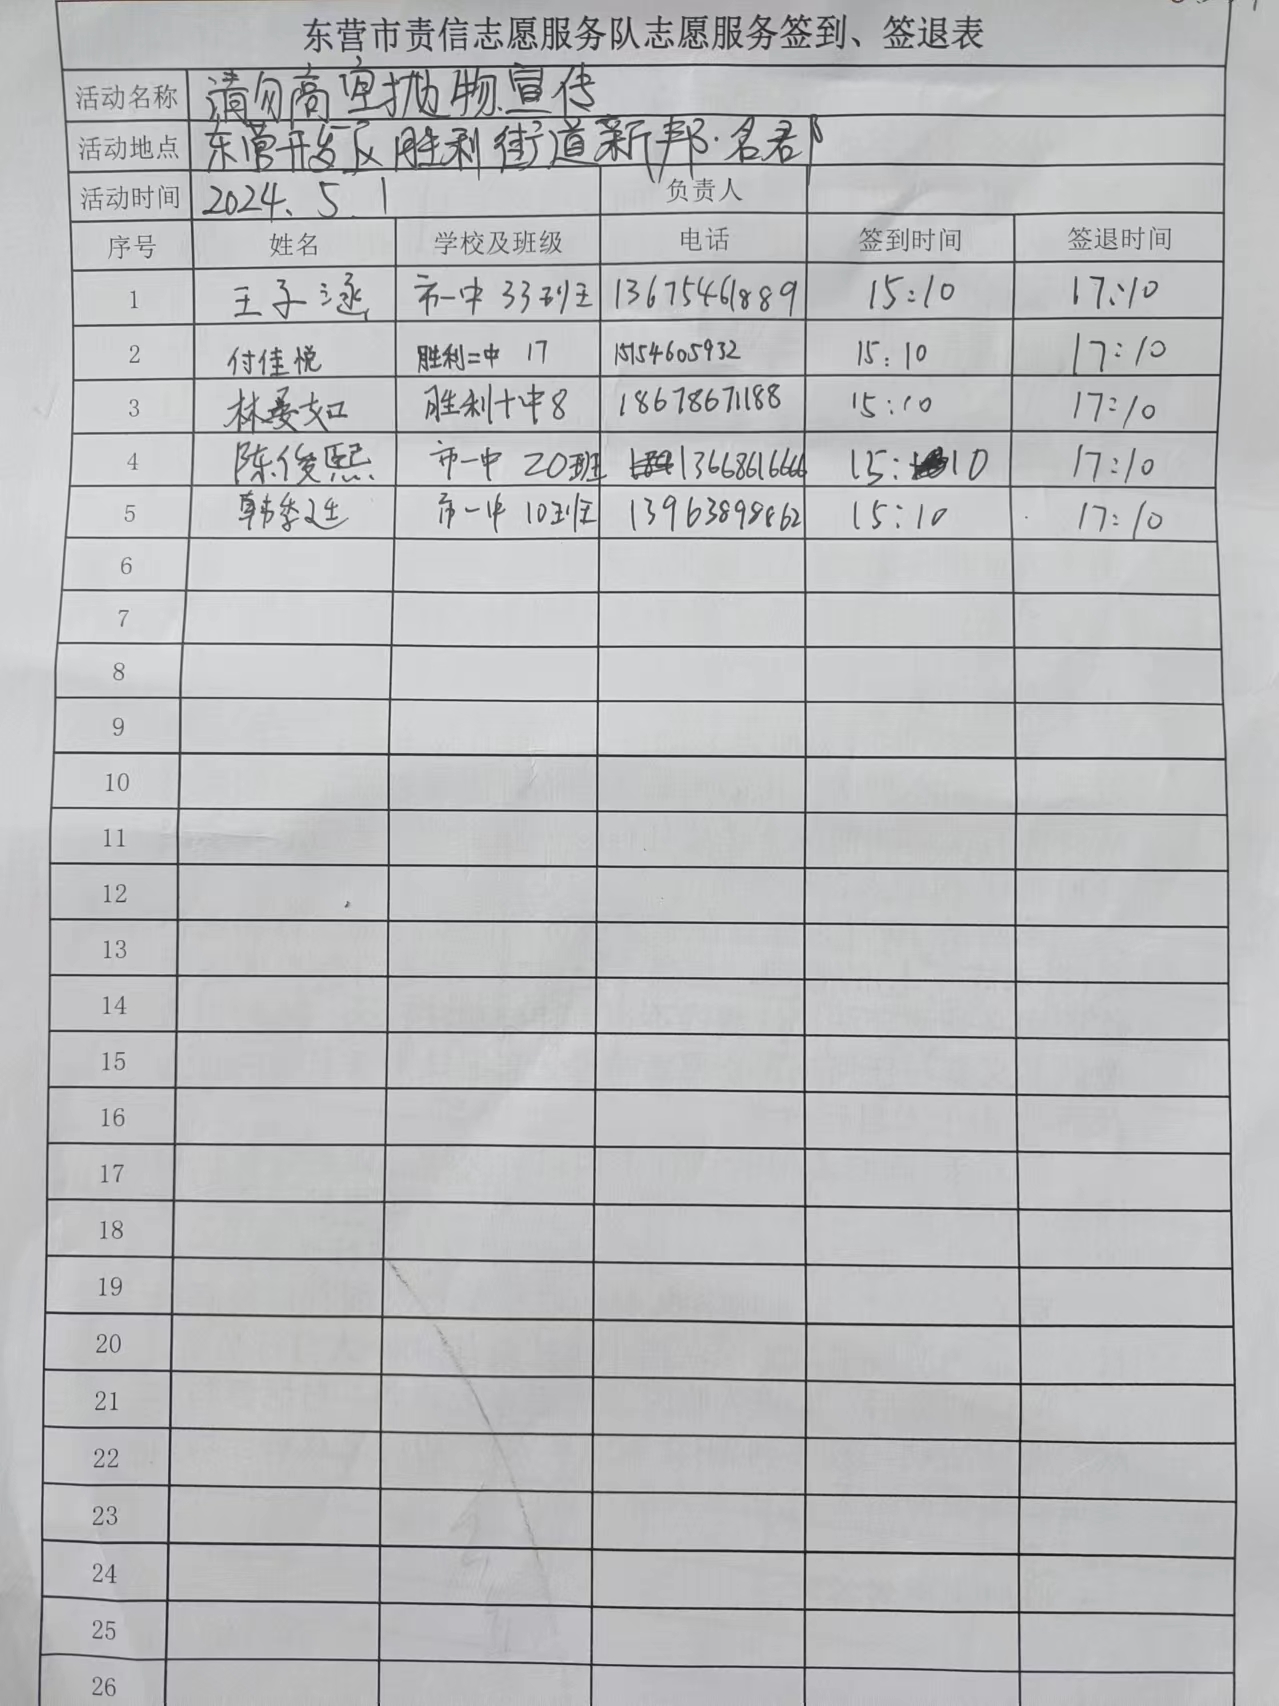 东营市责信志愿服务队志愿服务签到、签退表
活动名称 请勿高空抛物宣传
活动地点 东营开发区胜利街道新邦·名郡
活动时间 2024.5.1 负责人
序号 姓名 学校及班级 电话 签到时间 签退时间
1 王子涵 市一中 33班 13675461889 15:10 17:10
2 付佳悦 胜利二中 17 15154605932 15:10 17:10
3 林 胜利十中8 18678671188 15:10 17:10
4 陈俊熙 市一中 20班 13668616666 15:10 17:10
5 韩 市一中 10班 13963898862 15:10 17:10
6
7
8
9
10
11
12
13
14
15
16
17
18
19
20
21
22
23
24
25
26